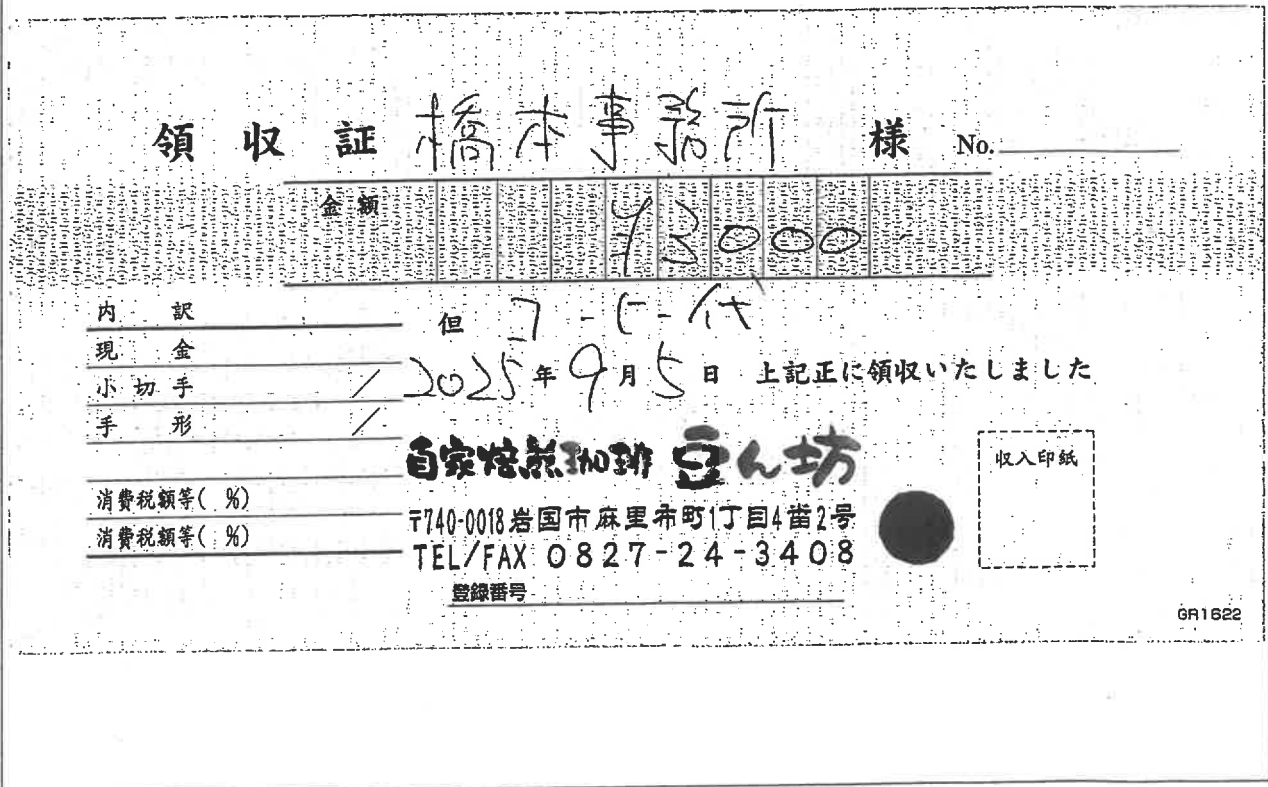 領収証 橋本事務所 様 No.
金額 ¥3000
内訳
現金
小切手
手形
消費税額等( %)
消費税額等( %)
但 コーヒー代
2025年9月5日 上記正に領収いたしました
自家焙煎珈琲 豆ん坊
〒740-0018 岩国市麻里布町1丁目4番2号
TEL/FAX 0827-24-3408
登録番号
収入印紙
GR1622